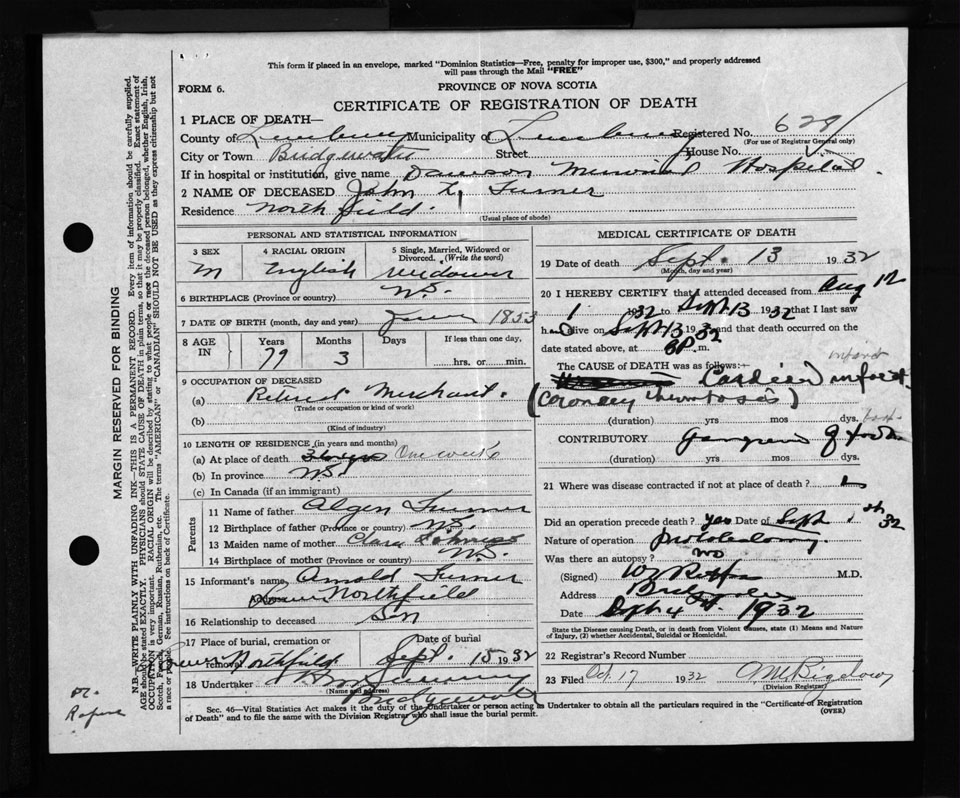 This form if placed in an envelope, marked "Dominion Statistics—Free, penalty for improper use, $300," and properly addressed
will pass through the Mail "FREE"
FORM 6.
PROVINCE OF NOVA SCOTIA
CERTIFICATE OF REGISTRATION OF DEATH
1 PLACE OF DEATH—
County of Lunenburg Municipality of Lunenburg Registered No. 628
(For use of Registrar General only)
City or Town Bridgewater Street House No.
If in hospital or institution, give name Dawson Memorial Hospital.
2 NAME OF DECEASED John Turner
Residence Northfield.
(Usual place of abode)
PERSONAL AND STATISTICAL INFORMATION
3 SEX
M
4 RACIAL ORIGIN
English
5 Single, Married, Widowed or
Divorced. (Write the word)
Widower
6 BIRTHPLACE (Province or country) N.S.
7 DATE OF BIRTH (month, day and year) June 1853
8 AGE
IN
Years
79
Months
3
Days
If less than one day,
hrs. or min.
9 OCCUPATION OF DECEASED
(a) Retired Merchant.
(Trade or occupation or kind of work)
(b)
(Kind of industry)
10 LENGTH OF RESIDENCE (in years and months)
(a) At place of death One week
(b) In province N.S.
(c) In Canada (if an immigrant)
Parents
11 Name of father Turner
12 Birthplace of father (Province or country) N.S.
13 Maiden name of mother Clara
14 Birthplace of mother (Province or country) N.S.
15 Informant's name Arnold Turner
Northfield
16 Relationship to deceased Son
17 Place of burial, cremation or
removal Northfield
Date of burial
Sept. 15 1932
18 Undertaker
(Name and address)
Bridgewater
MEDICAL CERTIFICATE OF DEATH
19 Date of death Sept. 13 1932
(Month, day and year)
20 I HEREBY CERTIFY that I attended deceased from Aug 12
1932 to Sept 13 1932 that I last saw
h alive on Sept 13 1932 and that death occurred on the
date stated above, at 8 P. m.
The CAUSE of DEATH was as follows:—
infarct
Cardiac infarct
(Coronary thrombosis)
(duration) yrs mos dys.
CONTRIBUTORY Gangrene of foot
(duration) yrs mos dys.
21 Where was disease contracted if not at place of death?
Did an operation precede death? yes Date of Sept 32
Nature of operation
Was there an autopsy? no
(Signed) M.D.
Address Bridgewater
Date Sept 1932
State the Disease causing Death, or in death from Violent Causes, state (1) Means and Nature
of Injury, (2) whether Accidental, Suicidal or Homicidal.
22 Registrar's Record Number
23 Filed Oct. 17 1932
(Division Registrar)
Sec. 46—Vital Statistics Act makes it the duty of the Undertaker or person acting as Undertaker to obtain all the particulars required in the "Certificate of Registration
of Death" and to file the same with the Division Registrar who shall issue the burial permit.
(OVER)
MARGIN RESERVED FOR BINDING
N.B.—WRITE PLAINLY WITH UNFADING INK—THIS IS A PERMANENT RECORD. Every item of information should be carefully supplied.
AGE should be stated EXACTLY. PHYSICIANS should STATE CAUSE OF DEATH in plain terms, so that it may be properly classified. Exact statement of
OCCUPATION is very important. RACIAL ORIGIN will be described by stating to what people or race the deceased person belonged, whether English, Irish,
Scotch, French, German, Russian, Ruthenian, etc. The terms "AMERICAN" or "CANADIAN" SHOULD NOT BE USED as they express citizenship but not
a race or people. See instructions on back of Certificate.